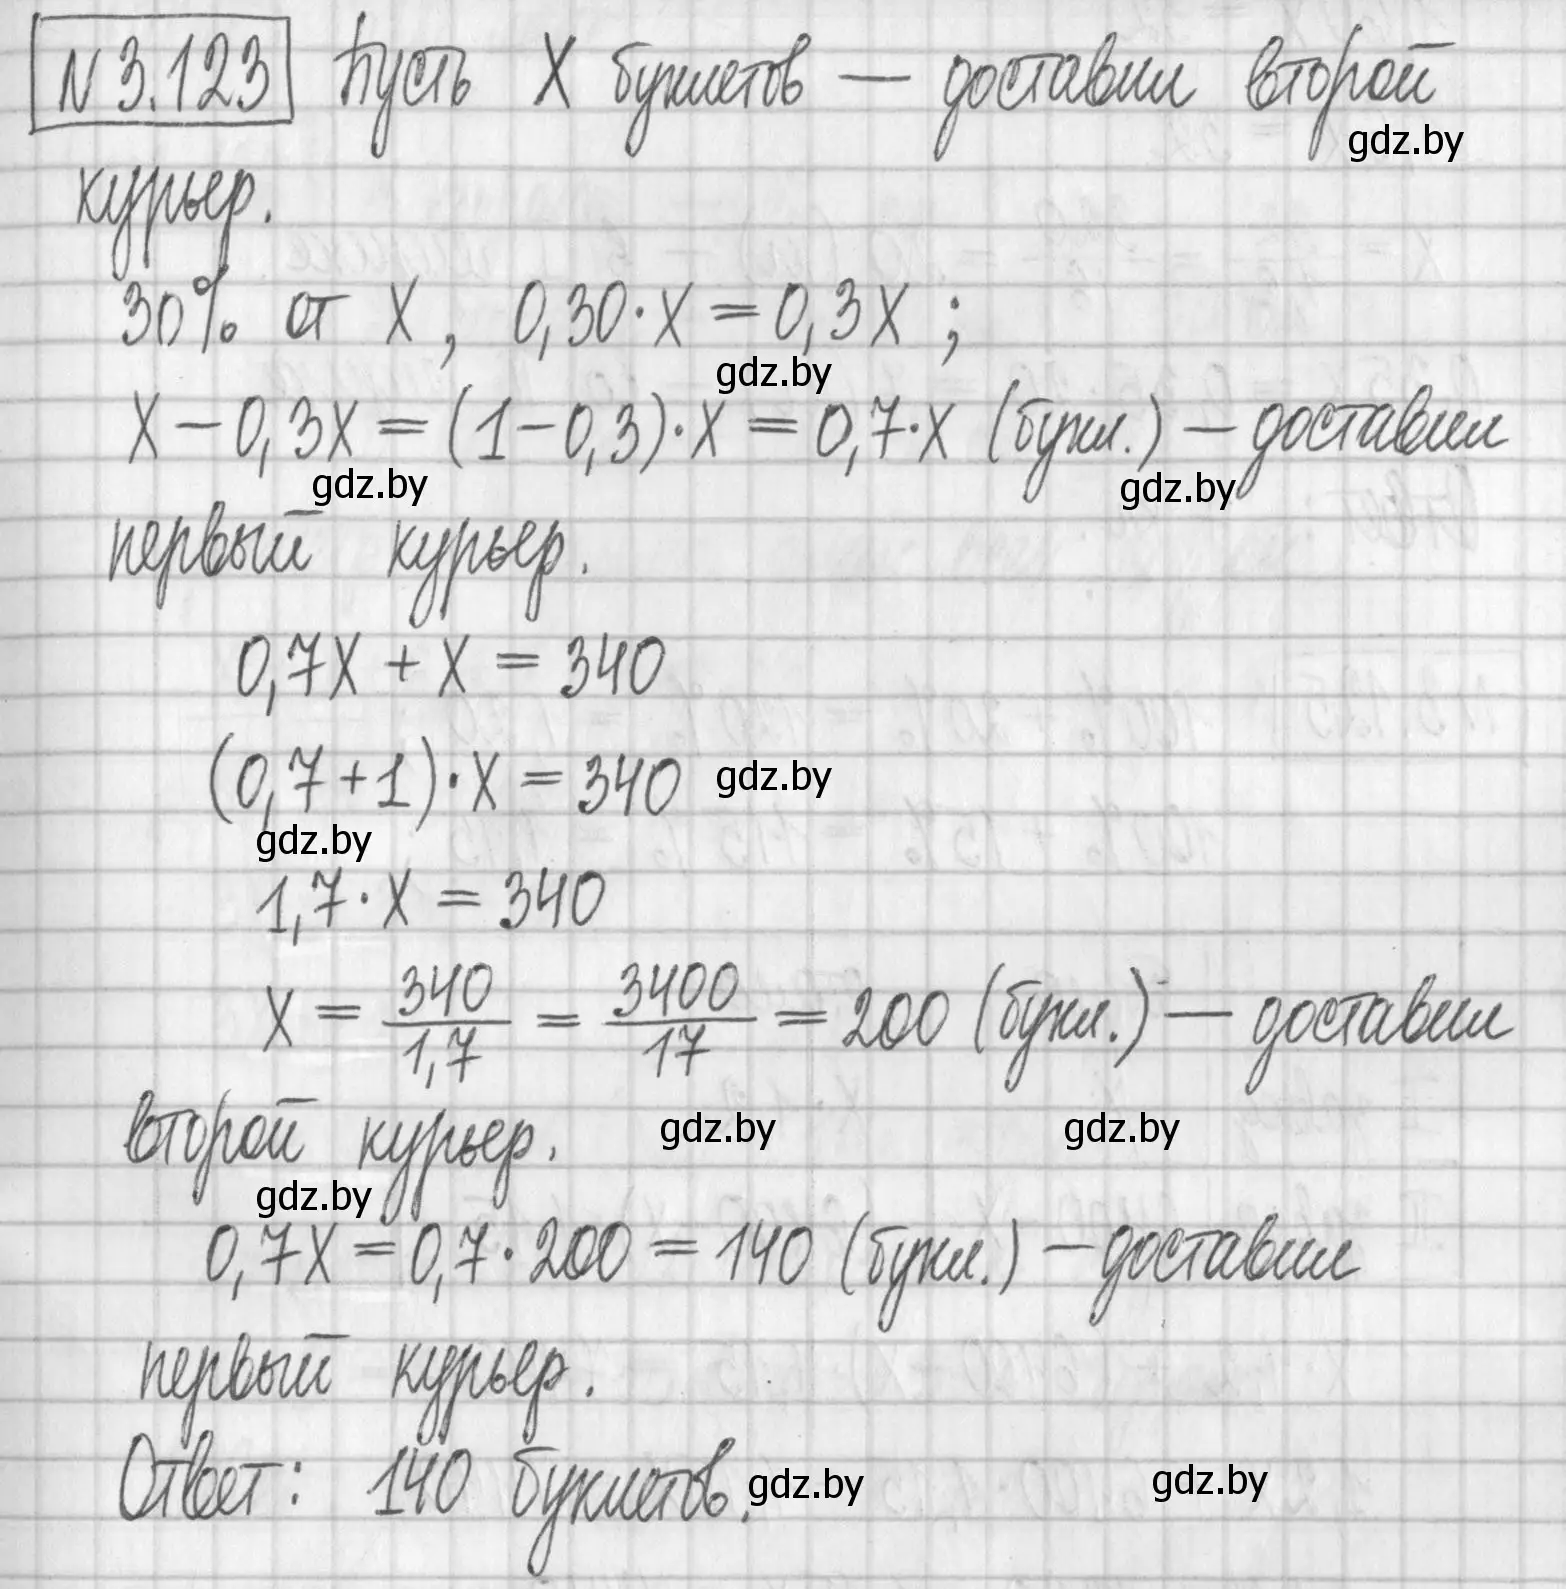 N 3.123 Пусть X буклетов — доставил второй
gdz.by
курьер.
30% от X, 0,30·X = 0,3X ;
gdz.by
X − 0,3X = (1−0,3)·X = 0,7·X (букл.) — доставил
gdz.by gdz.by
первый курьер.
0,7X + X = 340
(0,7+1)·X = 340 gdz.by
gdz.by
1,7·X = 340
X = 340/1,7 = 3400/17 = 200 (букл.) — доставил
второй курьер. gdz.by gdz.by
gdz.by
0,7X = 0,7·200 = 140 (букл.) — доставил
первый курьер.
Ответ: 140 буклетов. gdz.by gdz.by